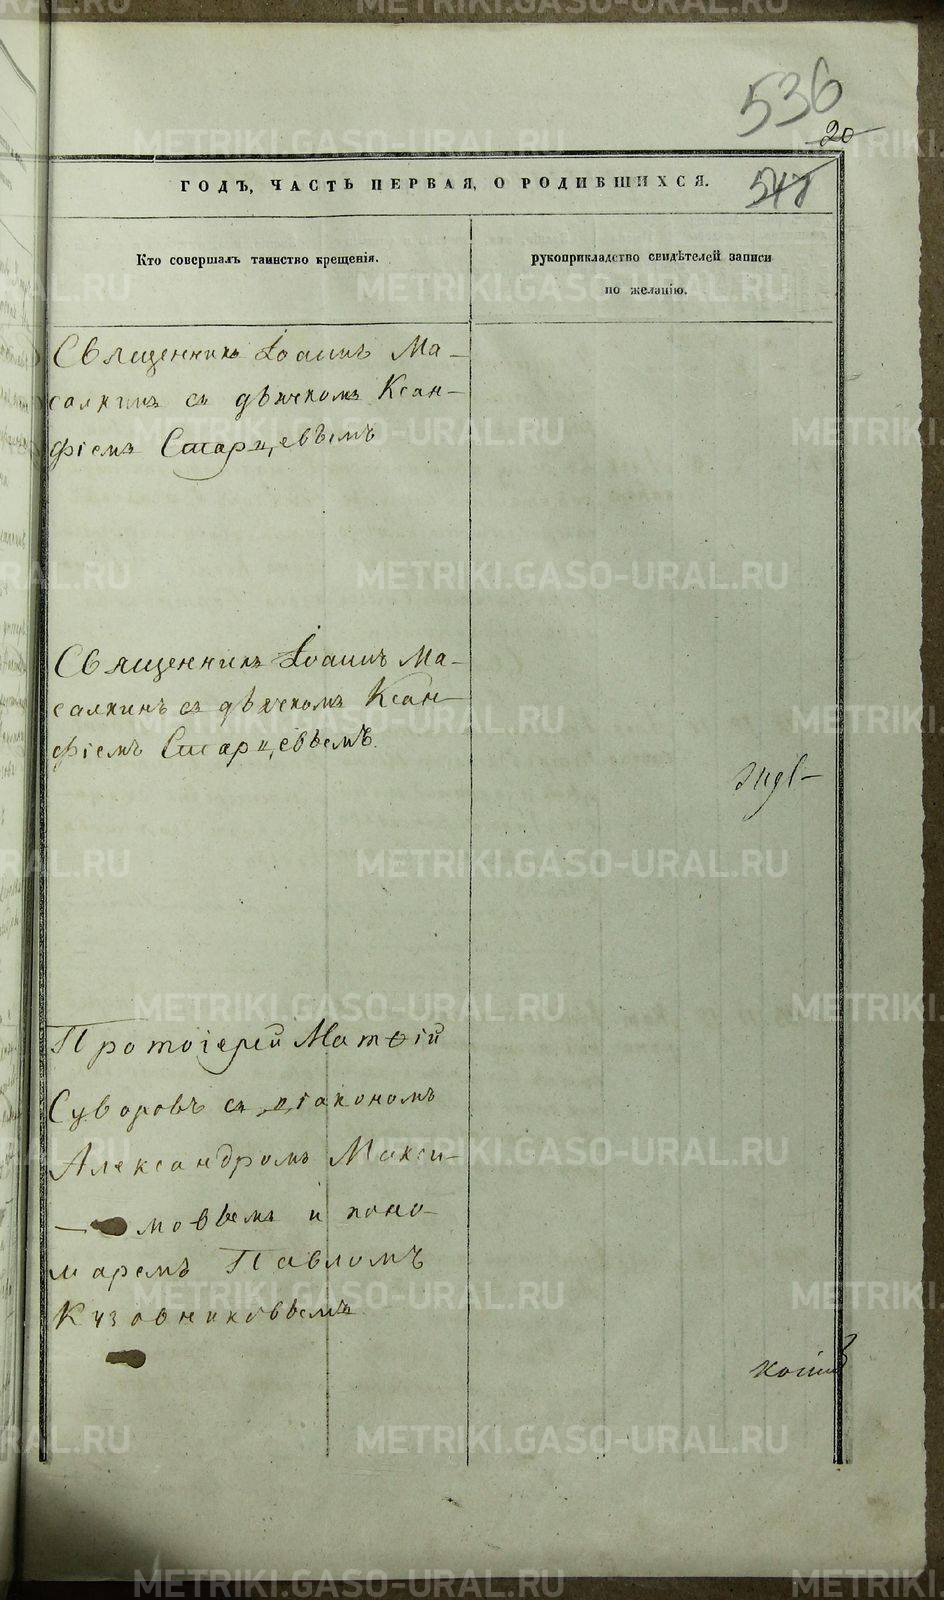 536
20
ГОДЪ, ЧАСТЬ ПЕРВАЯ, О РОДИВШИХСЯ.
Кто совершалъ таинство крещенія.
рукоприкладство свидѣтелей записи
по желанію.
Священникъ Іоаннъ Ма-
салкинъ съ дьячкомъ Ксан-
фіемъ Старцевымъ
Священникъ Іоаннъ Ма-
салкинъ съ дьячкомъ Ксан-
фіемъ Старцевымъ.
Протоіерей Матѳій
Суворовъ съ діакономъ
Александромъ Макси-
мовымъ и поно-
маремъ Павломъ
Кузовниковымъ
METRIKI.GASO-URAL.RU